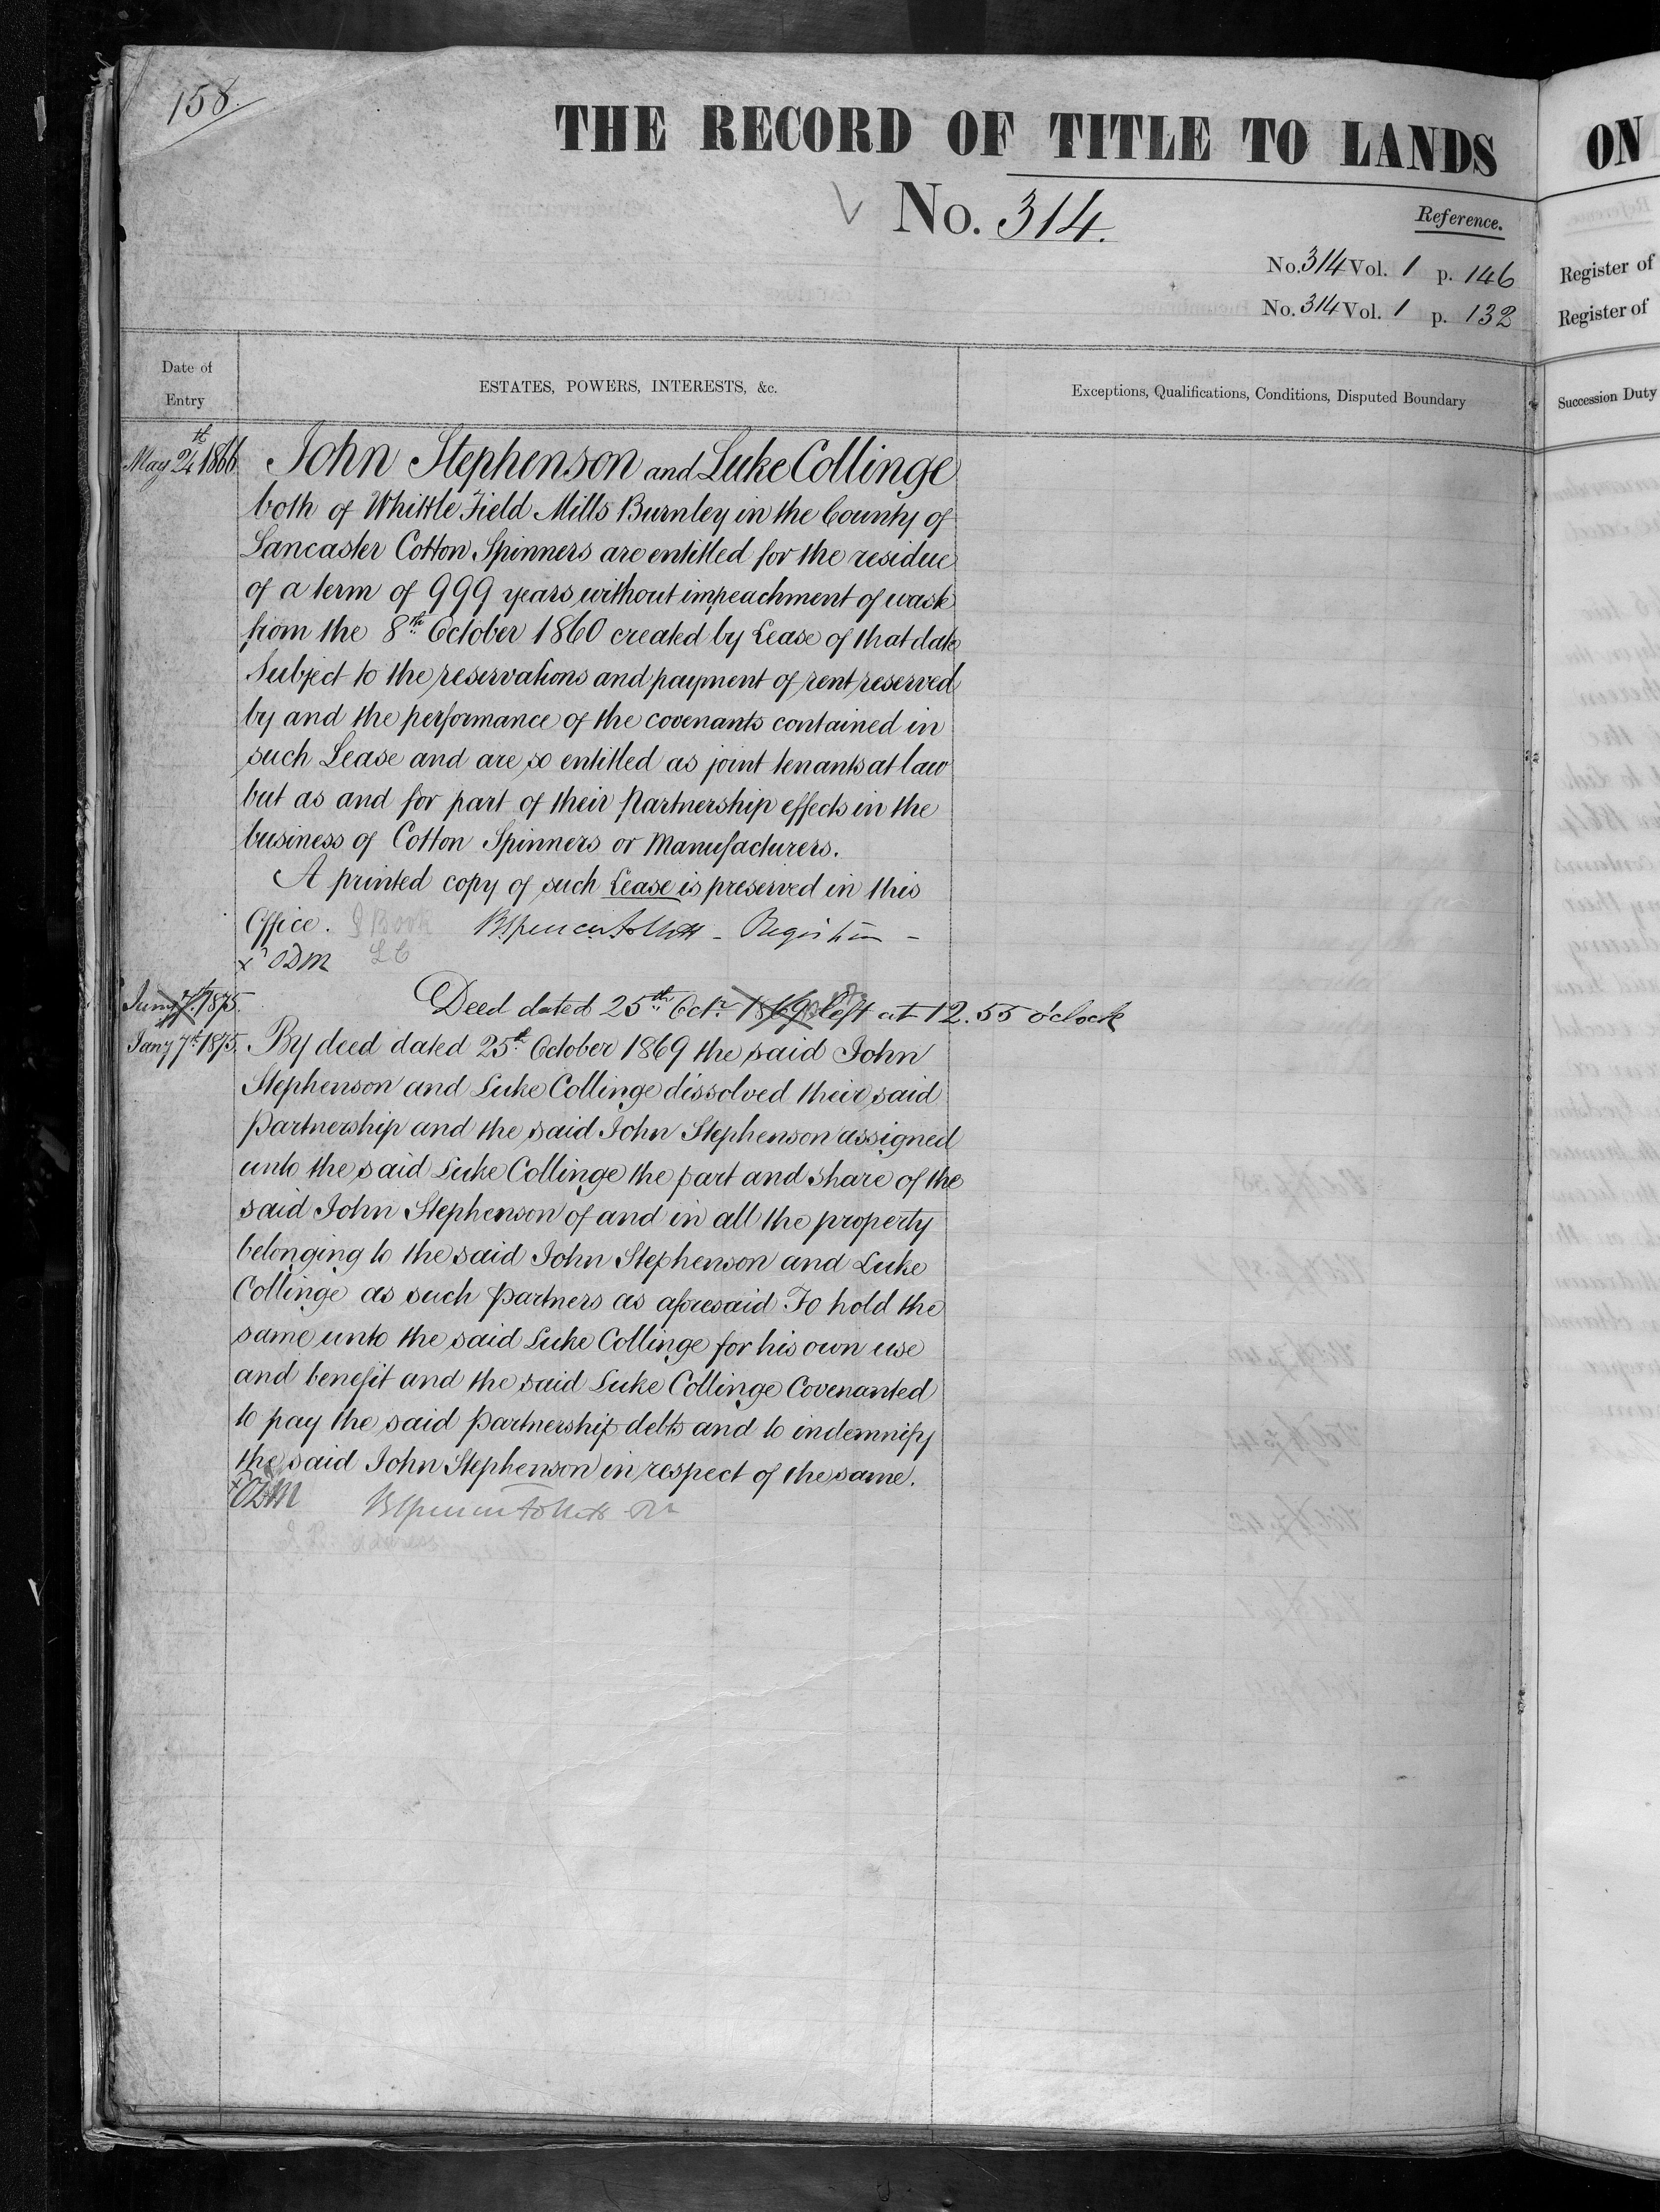 158.
THE RECORD OF TITLE TO LANDS
No. 314.
Reference.
No. 314 Vol. 1 p. 146
No. 314 Vol. 1 p. 132
Date of
Entry
ESTATES, POWERS, INTERESTS, &c.
Exceptions, Qualifications, Conditions, Disputed Boundary
May 24th 1866
John Stephenson and Luke Collinge
both of Whittle Field Mills Burnley in the County of
Lancaster Cotton Spinners are entitled for the residue
of a term of 999 years without impeachment of waste
from the 8th October 1860 created by Lease of that date
Subject to the reservations and payment of rent reserved
by and the performance of the covenants contained in
such Lease and are so entitled as joint tenants at law
but as and for part of their Partnership effects in the
business of Cotton Spinners or Manufacturers.
A printed copy of such Lease is preserved in this
Office.
Registrar
Jany 7th 1875.
Deed dated 25th Octr. 1869 left at 12.55 o'clock
Jany 7th 1875.
By deed dated 25th October 1869 the said John
Stephenson and Luke Collinge dissolved their said
Partnership and the said John Stephenson assigned
unto the said Luke Collinge the part and share of the
said John Stephenson of and in all the property
belonging to the said John Stephenson and Luke
Collinge as such Partners as aforesaid To hold the
same unto the said Luke Collinge for his own use
and benefit and the said Luke Collinge Covenanted
to pay the said Partnership debts and to indemnify
the said John Stephenson in respect of the same.
ON
Register of
Register of
Succession Duty